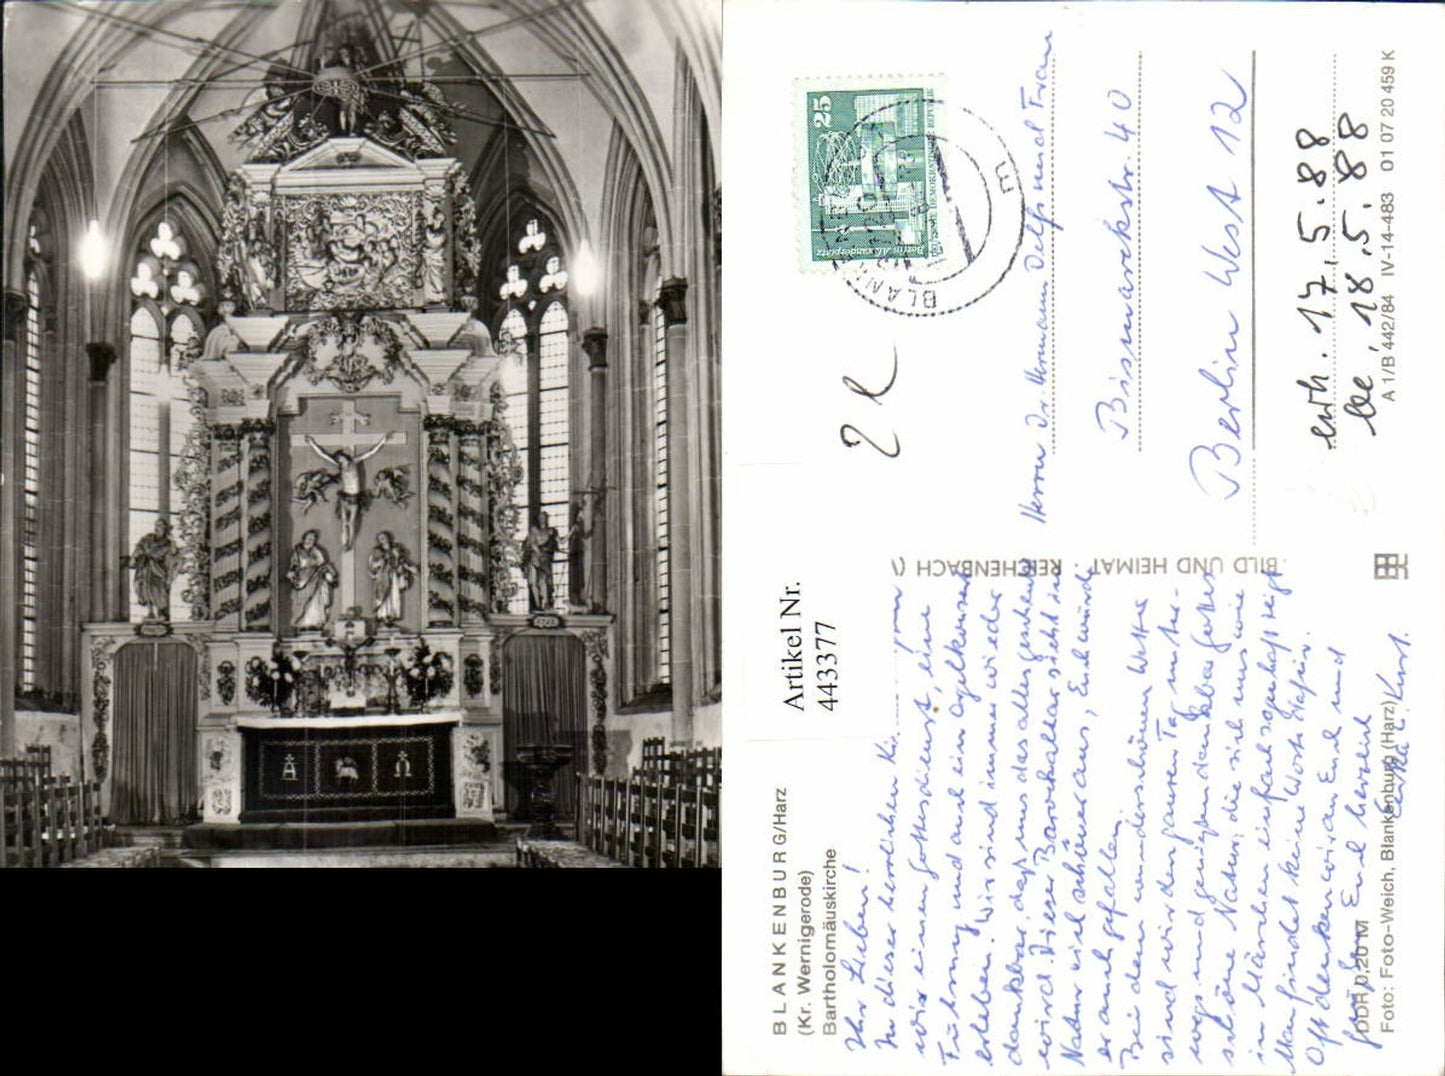 BLANKENBURG/Harz
(Kr. Wernigerode)
Bartholomäuskirche
Ihr Lieben!
In dieser herrlichen Ki
wir einen Gottesdienst, eine
Führung und auch ein Orgelkonzert
erleben. Wir sind immer wieder
dankbar, daß uns das alles geschenkt
wird. Dieser Barockaltar sieht in
Natur viel schöner aus, Euch würde
er auch gefallen.
Bei dem wunderschönen Wetter
sind wir den ganzen Tag unter-
wegs und genießen dankbar Gottes
schöne Natur, die sich uns wie
im Märchen einfach sagenhaft zeigt.
Man findet keine Worte dafür.
Oft denken wir an Euch und
grüßen Euch herzlich
Artikel Nr.
443377
BILD UND HEIMAT · REICHENBACH (V
25
Berlin, Alexanderplatz
BLANK
Herrn Dr. Hermann Delfs und Frau
Bismarckstr. 40
Berlin West 12
erh. 17.5.88
be, 18.5.88
A 1/B 442/84 IV-14-483 01 07 20 459 K
DDR 0,20 M
Foto: Foto-Weich, Blankenburg (Harz)